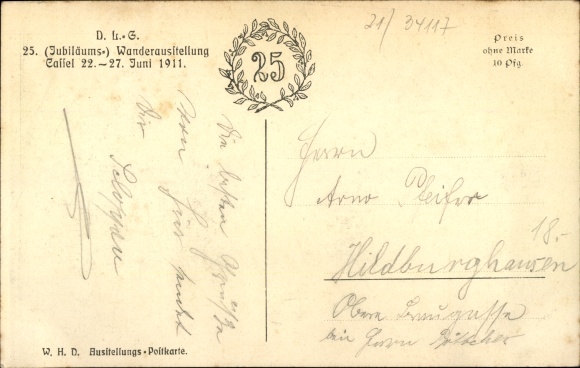 D. L.-G.
25. (Jubiläums-) Wanderausstellung
Cassel 22.–27. Juni 1911.
25
21/34117
Preis
ohne Marke
10 Pfg.
Die besten Grüße
von hier sendet
Dir
Herrn
Arno Pfeifer
Hildburghausen
18.-
Obere Braugasse
bei Herrn
W. H. D. Ausstellungs-Postkarte.